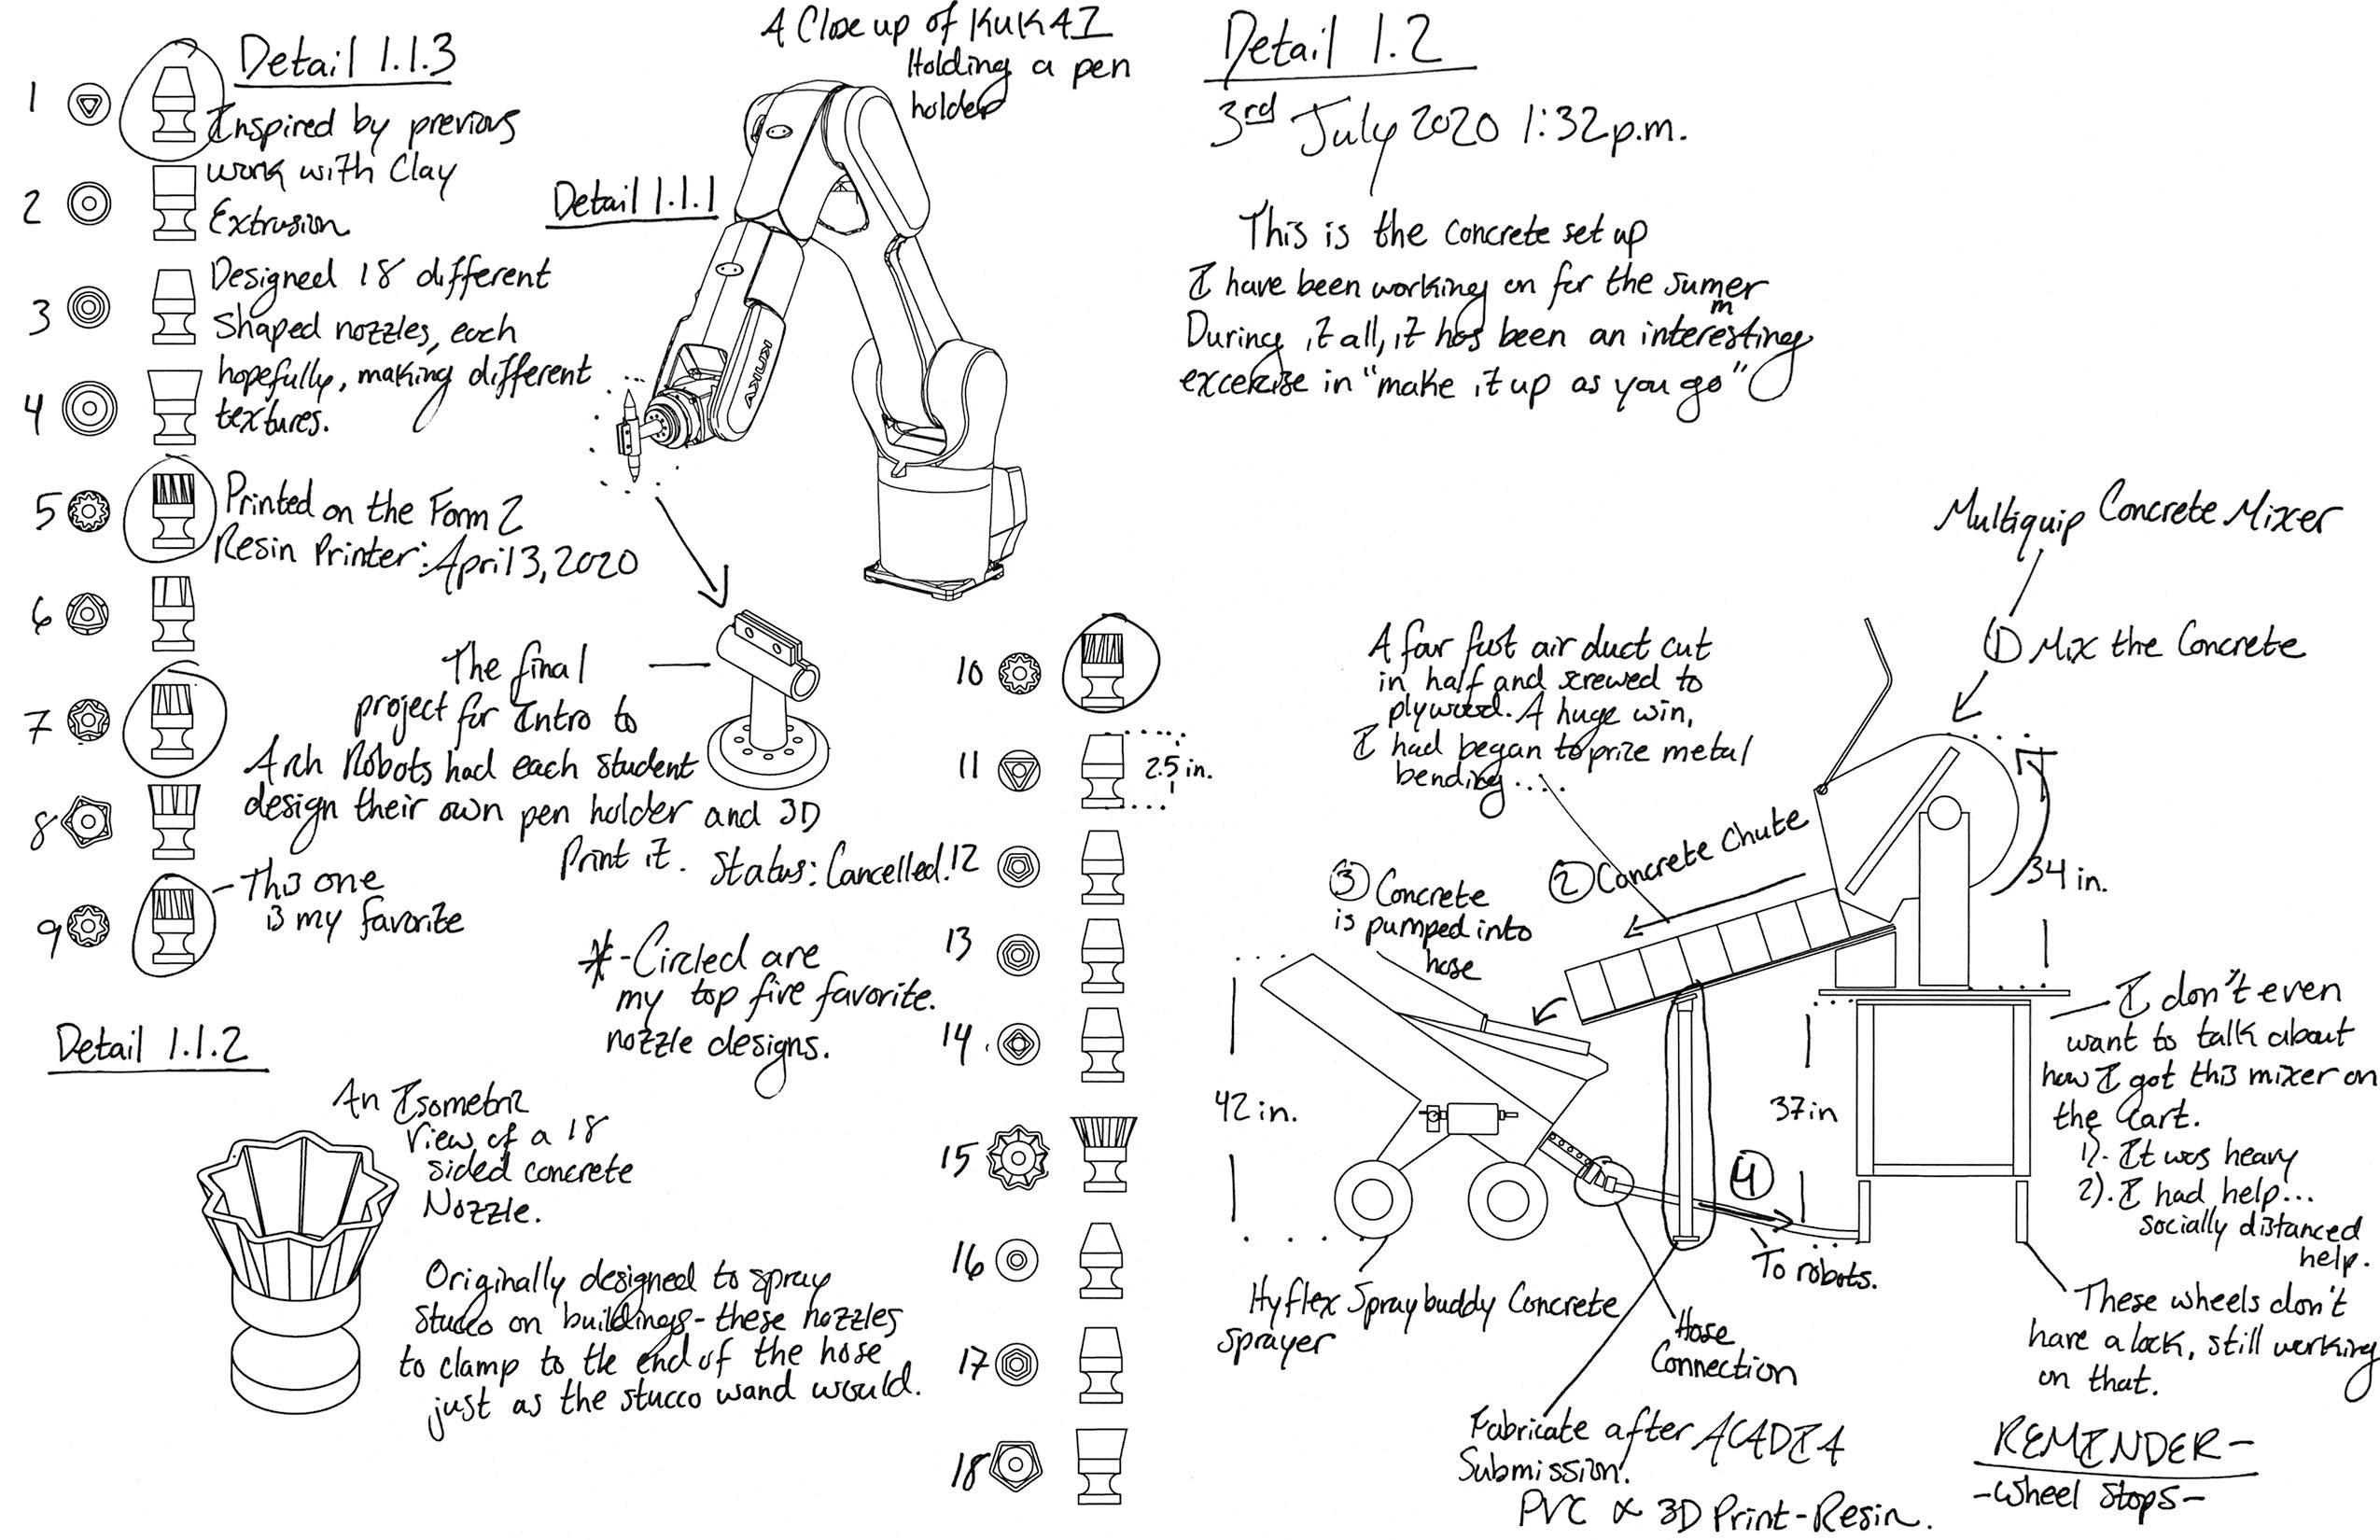 Detail 1.1.3
Inspired by previous
work with Clay
Extrusion.
Designed 18 different
Shaped nozzles, each
hopefully, making different
textures.
Printed on the Form 2
Resin Printer: April 3, 2020
1
2
3
4
5
6
7
8
9
This one
is my favorite
A Close up of KUKA I
Holding a pen
holder
Detail 1.1.1
KUKA
The final
project for Intro to
Arch Robots had each student
design their own pen holder and 3D
Print it. Status: Cancelled!
*-Circled are
my top five favorite.
nozzle designs.
10
11
2.5 in.
12
13
14.
15
16
17
18
Detail 1.1.2
An Isometric
View of a 18
sided concrete
Nozzle.
Originally designed to spray
stucco on buildings - these nozzles
to clamp to the end of the hose
just as the stucco wand would.
Detail 1.2
3rd July 2020 1:32p.m.
This is the concrete set up
I have been working on for the sumer
m
During it all, it has been an interesting
excercise in "make it up as you go"
Multiquip Concrete Mixer
① Mix the Concrete
A four foot air duct cut
in half and screwed to
plywood. A huge win,
I had began to prize metal
bending....
② Concrete Chute
③ Concrete
is pumped into
hose
34 in.
42 in.
37 in
④
To robots.
I don't even
want to talk about
how I got this mixer on
the Cart.
1). It was heavy
2). I had help...
socially distanced
help.
Hyflex Spraybuddy Concrete
Sprayer
Hose
Connection
These wheels don't
have a lock, still working
on that.
Fabricate after ACADIA
Submission!
PVC & 3D Print-Resin.
REMINDER-
-Wheel Stops-